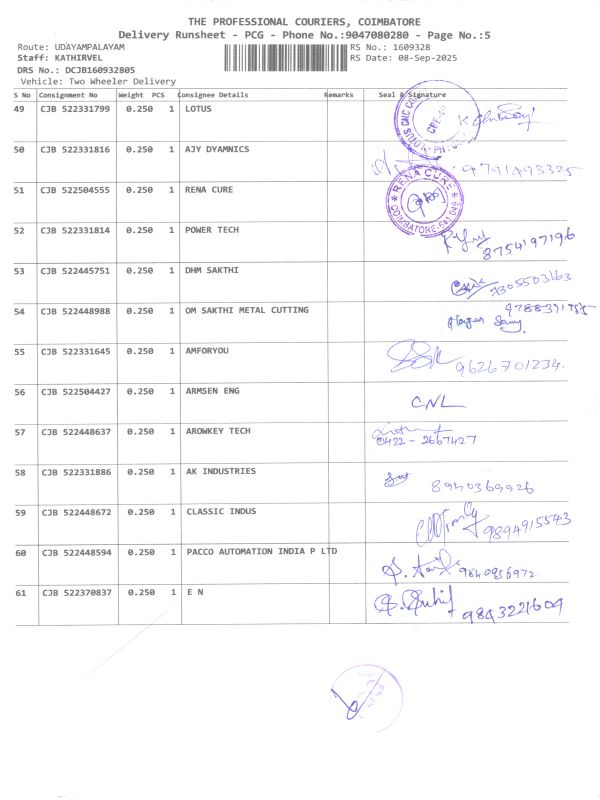 THE PROFESSIONAL COURIERS, COIMBATORE
Delivery Runsheet - PCG - Phone No.:9047080280 - Page No.:5
Route: UDAYAMPALAYAM RS No.: 1609328
Staff: KATHIRVEL RS Date: 08-Sep-2025
DRS No.: DCJB160932805
Vehicle: Two Wheeler Delivery
S No Consignment No Weight PCS Consignee Details Remarks Seal & Signature
49 CJB 522331799 0.250 1 LOTUS
50 CJB 522331816 0.250 1 AJY DYAMNICS 9791493325
51 CJB 522504555 0.250 1 RENA CURE RENA CURE COIMBATORE-641 049
52 CJB 522331814 0.250 1 POWER TECH 8754197196
53 CJB 522445751 0.250 1 DHM SAKTHI 7305503163
54 CJB 522448988 0.250 1 OM SAKTHI METAL CUTTING
55 CJB 522331645 0.250 1 AMFORYOU 9626701234.
56 CJB 522504427 0.250 1 ARMSEN ENG CNL
57 CJB 522448637 0.250 1 AROWKEY TECH 0422 - 2667427
58 CJB 522331886 0.250 1 AK INDUSTRIES 8940369926
59 CJB 522448672 0.250 1 CLASSIC INDUS 9894915543
60 CJB 522448594 0.250 1 PACCO AUTOMATION INDIA P LTD 9840956972
61 CJB 522370837 0.250 1 E N 9843221609